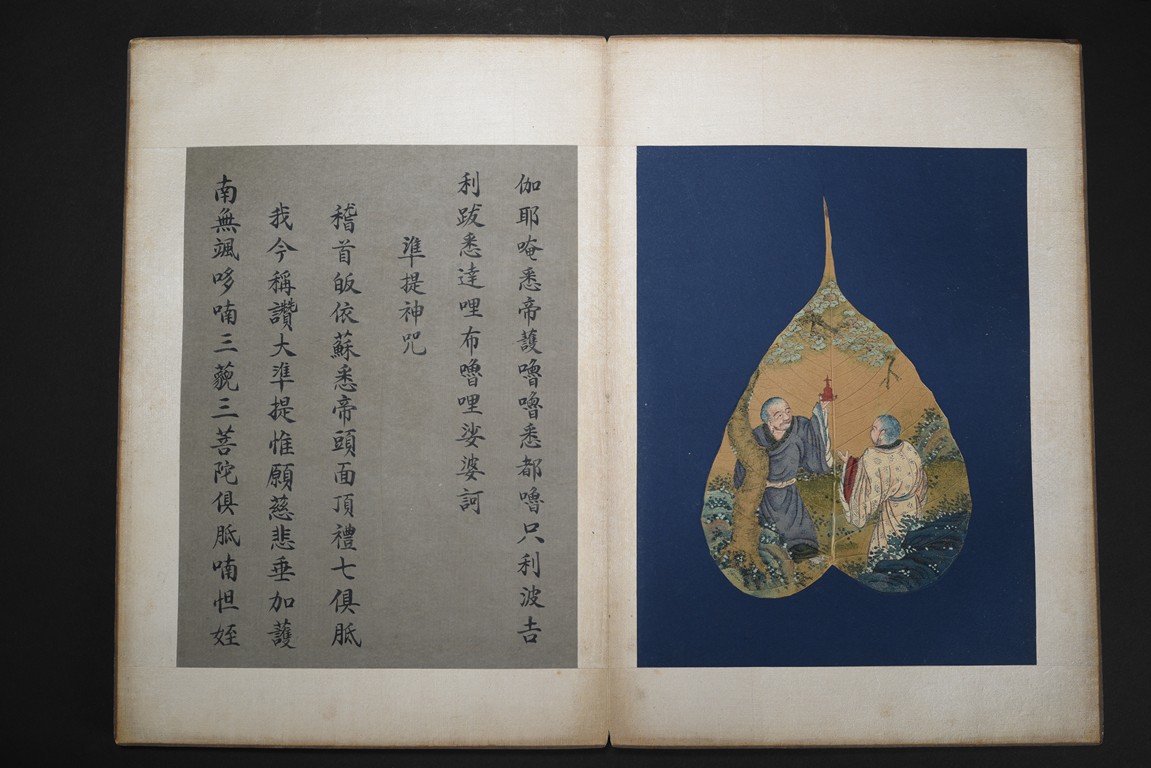 伽耶唵悉帝護嚕嚕悉都嚕只利波吉
利跋悉達哩布嚕哩娑婆訶
準提神咒
稽首皈依蘇悉帝頭面頂禮七俱胝
我今稱讚大準提惟願慈悲垂加護
南無颯哆喃三藐三菩陀俱胝喃怛姪